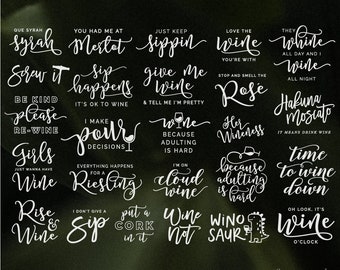 QUE SYRAH
syrah
YOU HAD ME AT
Merlot
JUST KEEP
sippin
LOVE THE
wine
YOU'RE WITH
THEY
whine
ALL DAY AND I
wine
ALL NIGHT
Screw it
sip
happens
IT'S OK TO WINE
give me
wine
& TELL ME I'M PRETTY
STOP AND SMELL THE
Rosé
Hakuna
Moscato
IT MEANS DRINK WINE
BE KIND
please
RE-WINE
I MAKE
pour
DECISIONS
wine
BECAUSE
ADULTING
IS HARD
Her
Wineness
because
adulting
is hard
time
to wine
down
Girls
JUST WANNA HAVE
Wine
EVERYTHING HAPPENS
FOR A
Riesling
I'M ON
cloud
wine
Rise
&
Wine
I DON'T GIVE A
Sip
put a
CORK
in it
Wine
not
WINO
SAUR
OH LOOK, IT'S
Wine
O'CLOCK